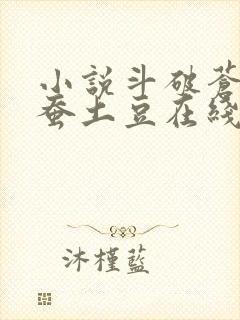 小說斗破蒼
蚕土豆在綫
沐槿藍